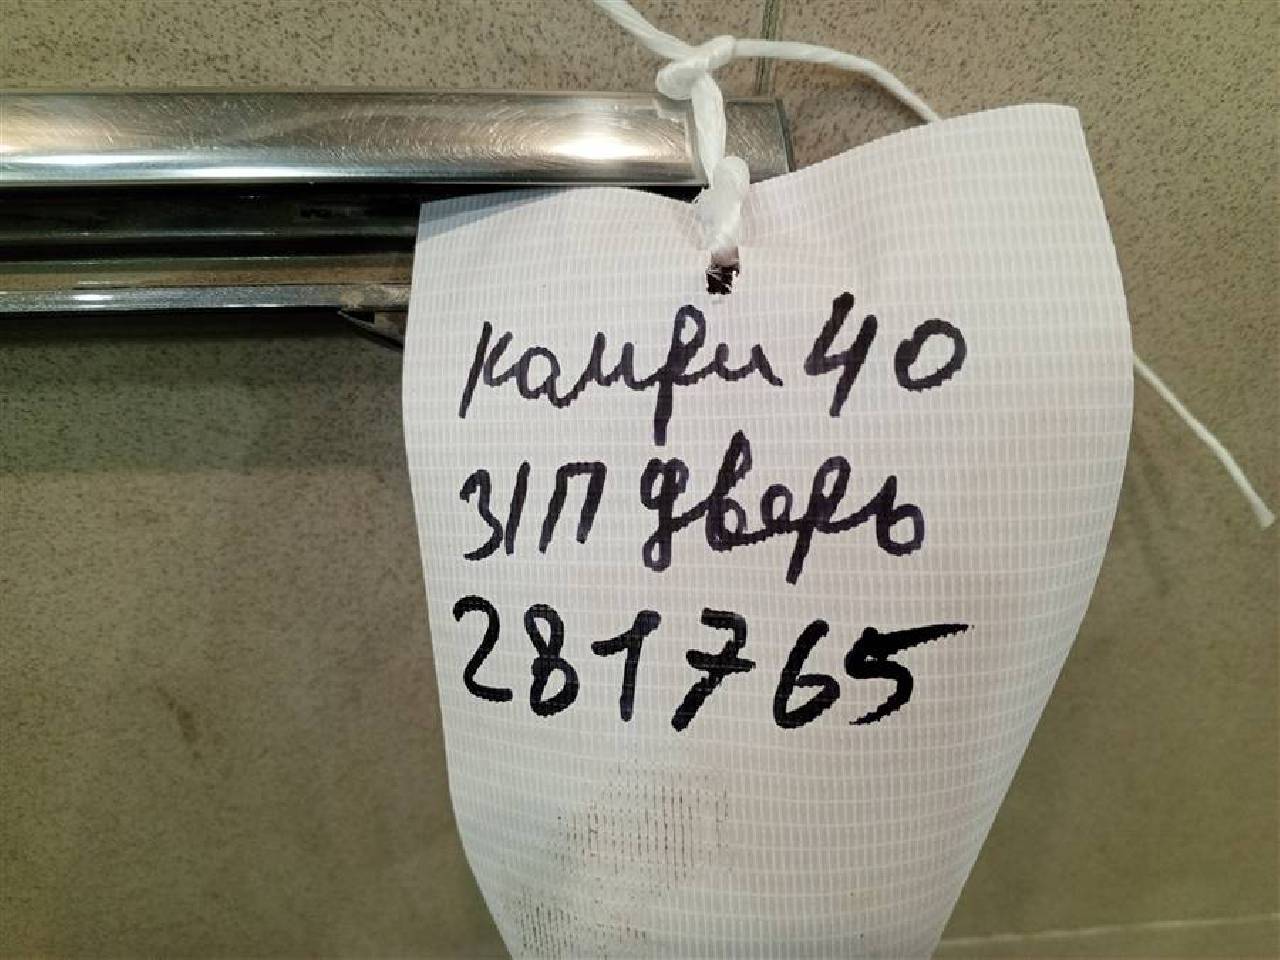 камри 40
з/п дверь
281765